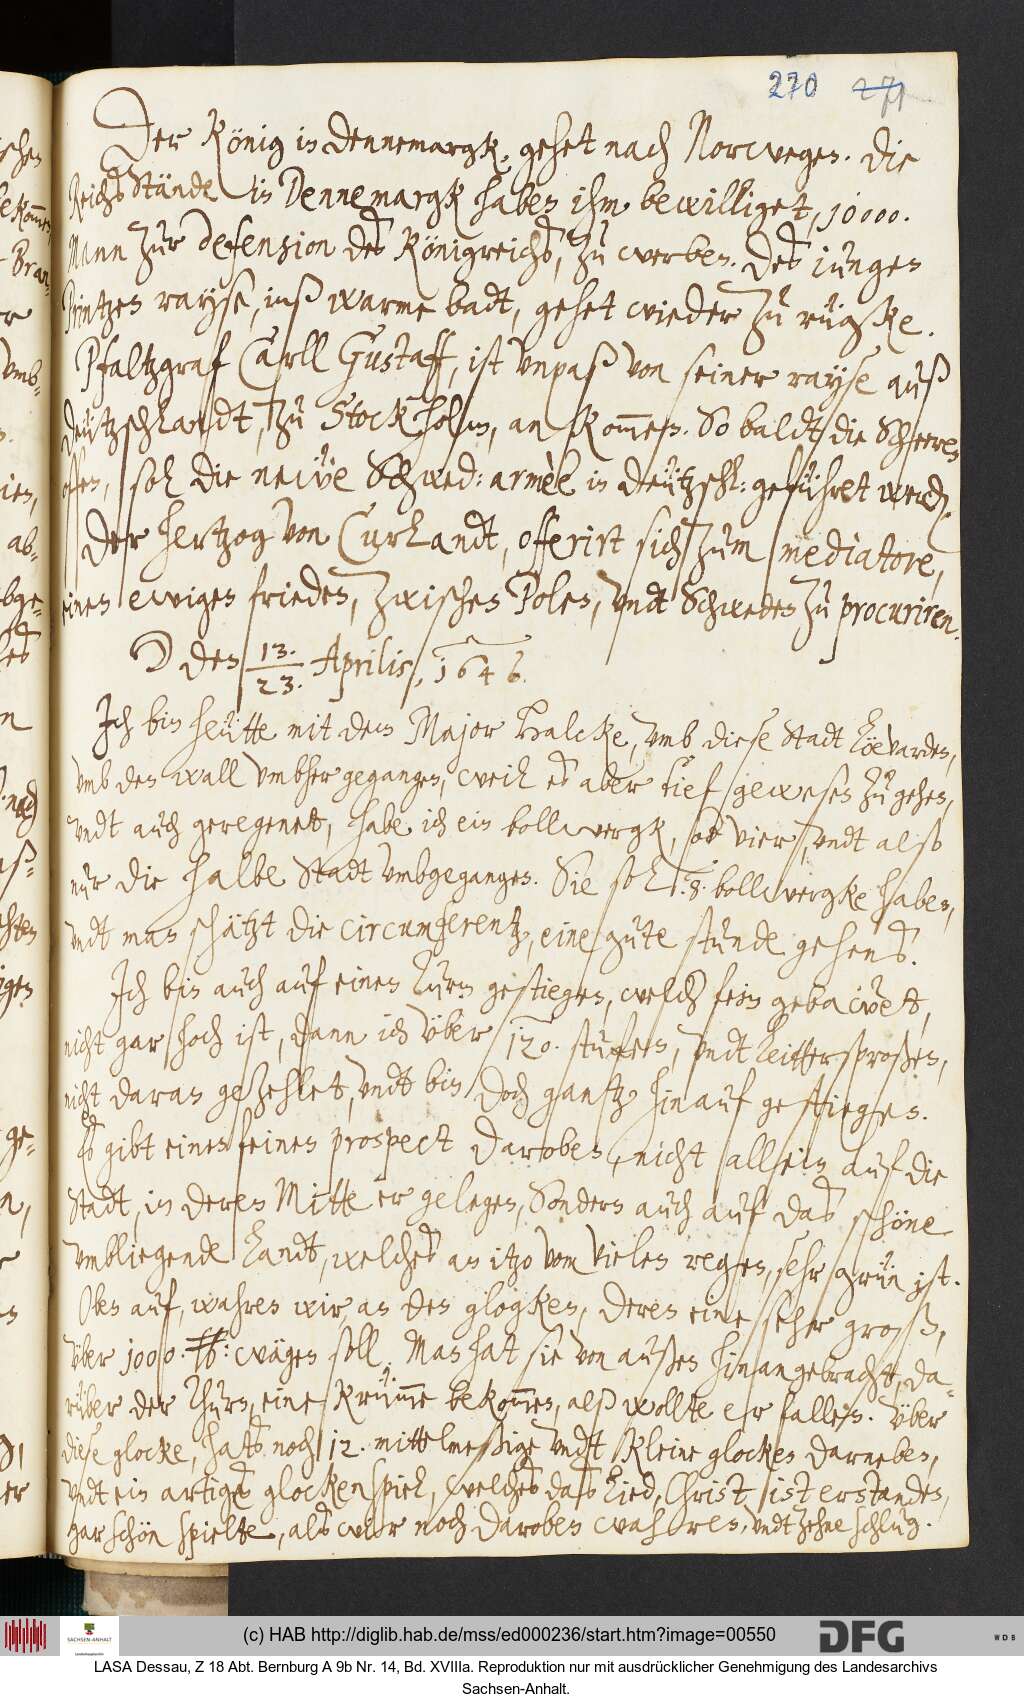 270 271
Der König in Dennemargk, gehet nach Norwegen. Die
Reichs Stände in Dennemargk haben ihm bewilliget, 10000.
Mann zur defension des Königreichs, zu werben. Des iungen
Printzen rayse, inß warme badt, gehet wieder zu rügke.
Pfaltzgraf Carll Gustaff, ist vnpaß von seiner rayse auß
Deützschlandt, zu Stockholm, an kom̄en. So baldt die Scheeren
offen, soll die neüe Schwed: armèe in deützschl: geführet werd.
Der hertzog von Curlandt, offerirt sich zum mediatore,
einen ewigen frieden, zwischen Polen, vndt Schweden zu procuriren.
☽ den 13./23. Aprilis, 1646.
Ich bin heütte mit dem Major Halcke, vmb diese Stadt Löewarden,
vmb den wall vmbher gegangen, weil es aber tief gewesen zu gehen,
vndt auch geregenet, habe ich ein bollwergk, od vier, vndt also
nur die halbe Stadt vmbgegangen. Sie soll .8. bollwergke haben,
vndt man schätzt die circumferentz, eine gute stunde gehens.
Ich bin auch auf einen Turn gestiegen, welch fein gebawet,
nicht gar hoch ist, dann ich über 120. stufen, vndt Leittersproßen,
nicht daran gezehlet, vndt bin doch gantz hinauf gestiegen.
Es gibt einen feinen prospect daroben, nicht allein auf die
Stadt, in deren Mitte er gelegen, Sondern auch auf das schöne
vmbliegende Landt, welches an itzo vom vielen regen, sehr grün ist.
Oben auf, wahren wir, an den glogken, deren eine seher groß,
über 1000. ℔: wägen soll. Man hat sie von außen hinangebracht, da-
rüber der Thurn, eine krüm̄e bekom̄en, alß wollte er fallen. Über
diese glocke, hats noch 12. mittelmeßige vndt kleine glocken darneben,
vndt ein artiges glockenspiel, welches daß Lied, Christ ist erstanden,
gar schön spielte, als wir noch daroben wahren, vndt zehne schlug.
(c) HAB http://diglib.hab.de/mss/ed000236/start.htm?image=00550
SACHSEN-ANHALT
DFG
WDB
LASA Dessau, Z 18 Abt. Bernburg A 9b Nr. 14, Bd. XVIIIa. Reproduktion nur mit ausdrücklicher Genehmigung des Landesarchivs
Sachsen-Anhalt.